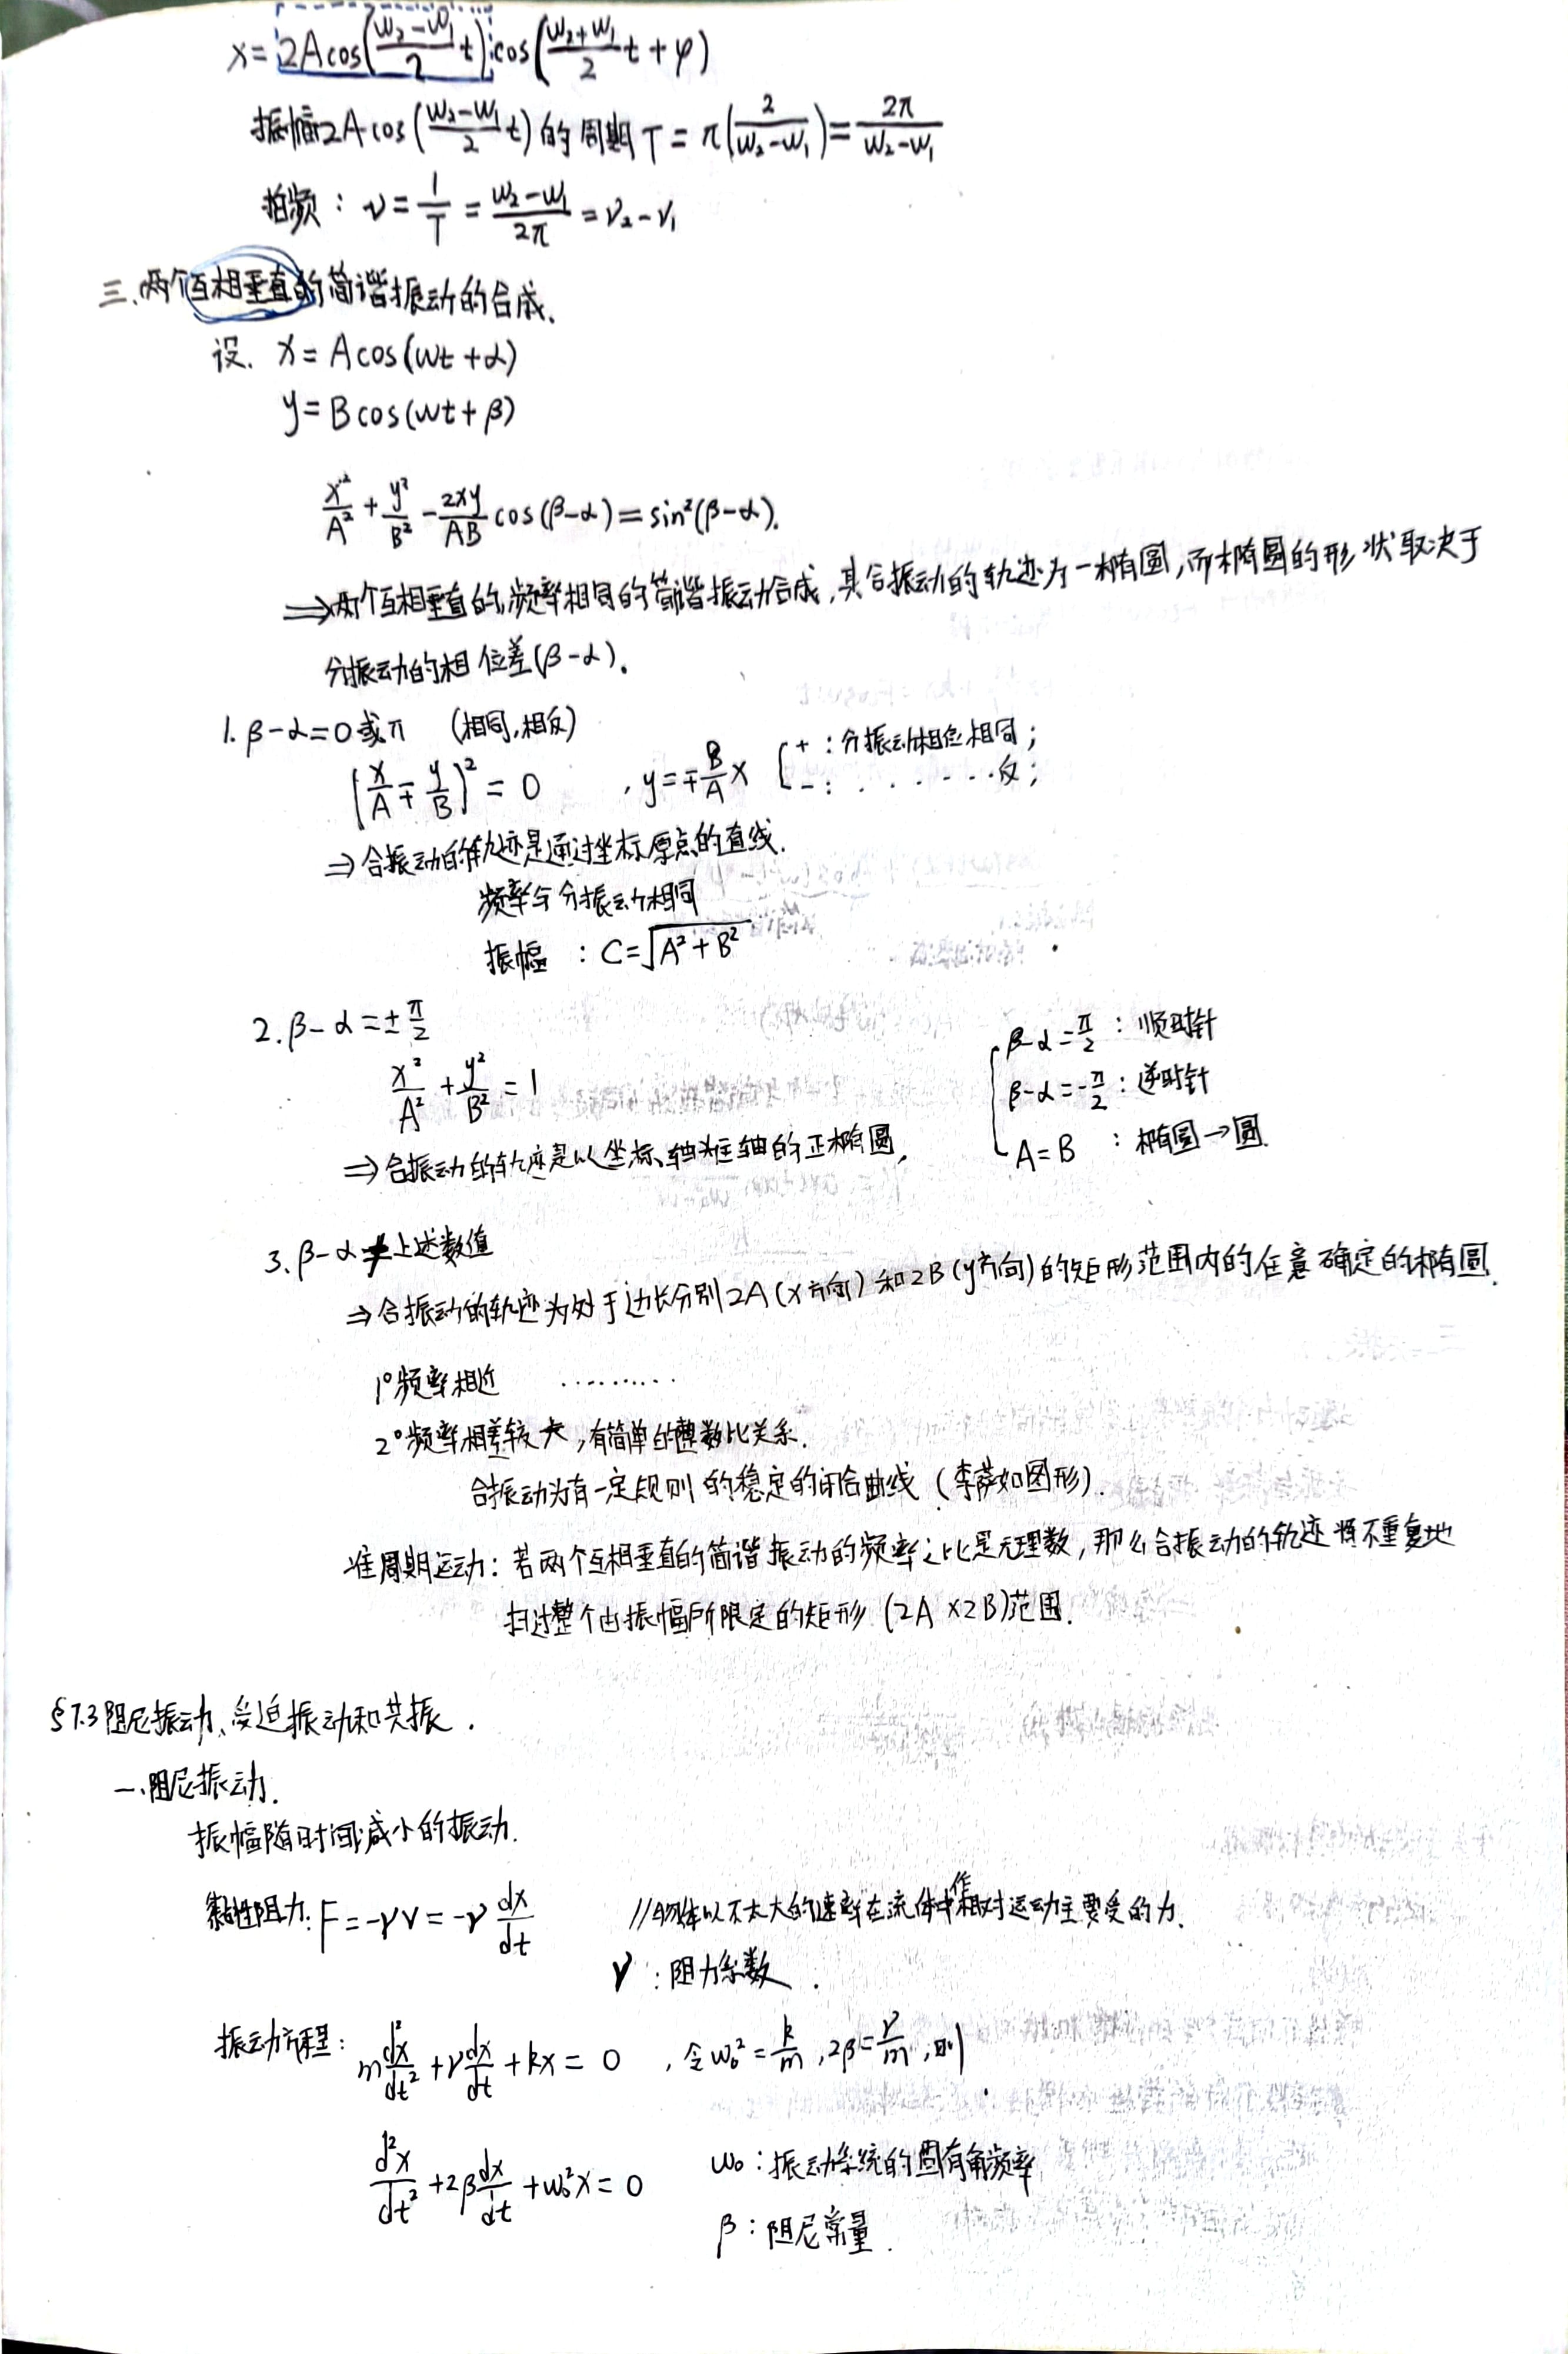 x = 2Acos(\frac{ω₂-ω₁}{2}t)cos(\frac{ω₂+ω₁}{2}t+φ)
振幅2Acos(\frac{ω₂-ω₁}{2}t)的周期T = π(\frac{2}{ω₂-ω₁}) = \frac{2π}{ω₂-ω₁}
拍频：ν = \frac{1}{T} = \frac{ω₂-ω₁}{2π} = ν₂-ν₁
三.两个互相垂直的简谐振动的合成.
设. x = Acos(ωt+α)
y = Bcos(ωt+β)
\frac{x²}{A²} + \frac{y²}{B²} - \frac{2xy}{AB}cos(β-α) = sin²(β-α).
⟹两个互相垂直的,频率相同的简谐振动合成,其合振动的轨迹为一椭圆,而椭圆的形状取决于
分振动的相位差(β-α)。
1. β-α=0或π (相同,相反)
(\frac{x}{A} ∓ \frac{y}{B})² = 0 , y = ∓\frac{B}{A}x { + : 分振动相位相同;
- : . . . . . . . 反;
⇒ 合振动的轨迹是通过坐标原点的直线.
频率与分振动相同
振幅 : C = √(A²+B²)
2. β-α = ±\frac{π}{2} { β-α = \frac{π}{2} : 顺时针
\frac{x²}{A²} + \frac{y²}{B²} = 1 β-α = -\frac{π}{2} : 逆时针
⇒ 合振动的轨迹是以坐标轴为主轴的正椭圆, A=B : 椭圆→圆.
3. β-α ≠ 上述数值
⇒ 合振动的轨迹为处于边长分别2A(x方向)和2B(y方向)的矩形范围内的任意确定的椭圆.
1°频率相近 ..........
2°频率相差较大,有简单的整数比关系.
合振动为有一定规则的稳定的闭合曲线 (李萨如图形).
准周期运动: 若两个互相垂直的简谐振动的频率之比是无理数,那么合振动的轨迹将不重复地
扫过整个由振幅所限定的矩形 (2A×2B)范围.
§7.3阻尼振动、受迫振动和共振.
一.阻尼振动.
振幅随时间减小的振动.
黏性阻力: F = -γv = -γ\frac{dx}{dt} //物体以不太大的速率在流体中作相对运动主要受的力.
γ : 阻力系数.
振动方程: m\frac{d²x}{dt²} + γ\frac{dx}{dt} + kx = 0 , 令ω₀² = \frac{k}{m}, 2β = \frac{γ}{m}, 则
\frac{d²x}{dt²} + 2β\frac{dx}{dt} + ω₀²x = 0 ω₀ : 振动系统的固有角频率
β : 阻尼常量.